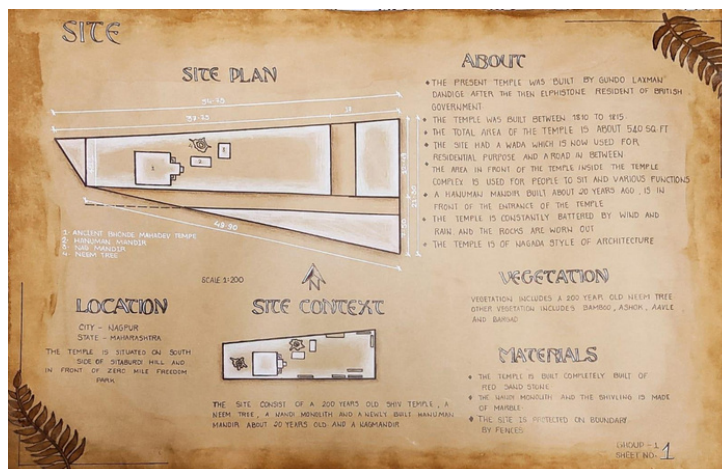 SITE
SITE PLAN
1
2
3
1- ANCIENT BHONDE MAHADEV TEMPLE
2- HANUMAN MANDIR
3- NAG MANDIR
4- NEEM TREE
SCALE 1:200
LOCATION
CITY - NAGPUR
STATE - MAHARASHTRA
THE TEMPLE IS SITUATED ON SOUTH
SIDE OF SITABURDI HILL AND
IN FRONT OF ZERO MILE FREEDOM
PARK
SITE CONTEXT
THE SITE CONSIST OF A 200 YEARS OLD SHIV TEMPLE, A
NEEM TREE, A NANDI MONOLITH AND A NEWLY BUILT HANUMAN
MANDIR ABOUT 20 YEARS OLD AND A NAGMANDIR
ABOUT
• THE PRESENT TEMPLE WAS BUILT BY GUNDO LAXMAN
DANDIGE AFTER THE THEN ELPHISTONE RESIDENT OF BRITISH
GOVERNMENT
• THE TEMPLE WAS BUILT BETWEEN 1810 TO 1815.
• THE TOTAL AREA OF THE TEMPLE IS ABOUT 540 SQ FT
• THE SITE HAD A WADA WHICH IS NOW USED FOR
RESIDENTIAL PURPOSE AND A ROAD IN BETWEEN
• THE AREA IN FRONT OF THE TEMPLE INSIDE THE TEMPLE
COMPLEX IS USED FOR PEOPLE TO SIT AND VARIOUS FUNCTIONS
• A HANUMAN MANDIR BUILT ABOUT 20 YEARS AGO, IS IN
FRONT OF THE ENTRANCE OF THE TEMPLE
• THE TEMPLE IS CONSTANTLY BATTERED BY WIND AND
RAIN AND THE ROCKS ARE WORN OUT
• THE TEMPLE IS OF NAGADA STYLE OF ARCHITECTURE
VEGETATION
VEGETATION INCLUDES A 200 YEAR OLD NEEM TREE
OTHER VEGETATION INCLUDES BAMBOO, ASHOK, AAVLE
AND BARGAD
MATERIALS
• THE TEMPLE IS BUILT COMPLETELY BUILT OF
RED SAND STONE
• THE NANDI MONOLITH AND THE SHIVLING IS MADE
OF MARBLE
• THE SITE IS PROTECTED ON BOUNDARY
BY FENCES
GROUP - 1
SHEET NO - 1